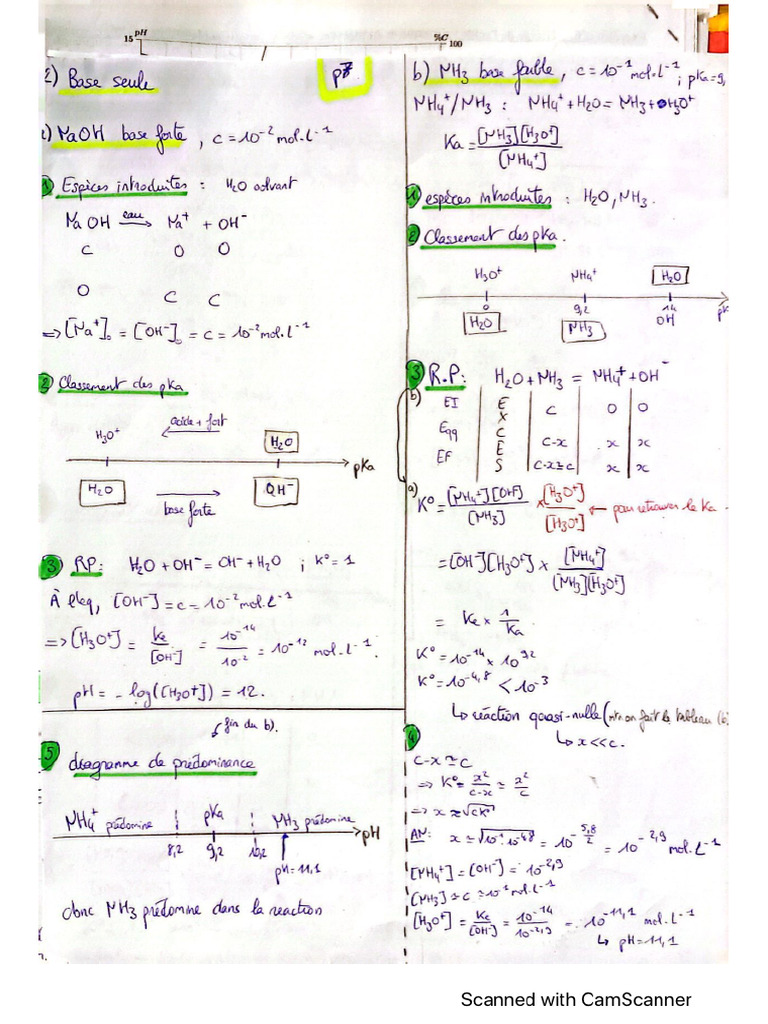 15 pH
%C 100
2) Base seule
p7
a) NaOH base forte, c = 10⁻² mol.L⁻¹
1 Espèces introduites : H₂O solvant
NaOH —eau→ Na⁺ + OH⁻
C O O
O C C
=> [Na⁺]₀ = [OH⁻]₀ = c = 10⁻² mol.L⁻¹
2 Classement des pKa
acide + fort
H₃O⁺ H₂O
pKa
H₂O OH⁻
base forte
3 RP: H₂O + OH⁻ = OH⁻ + H₂O ; K° = 1
À l'éq, [OH⁻] = c = 10⁻² mol.L⁻¹
=> [H₃O⁺] = Ke/[OH⁻] = 10⁻¹⁴/10⁻² = 10⁻¹² mol.L⁻¹.
pH = -log([H₃O⁺]) = 12.
fin du b).
5 diagramme de prédominance
NH₄⁺ prédomine pKa NH₃ prédomine pH
8,2 9,2 10,2
pH = 11,1
donc NH₃ prédomine dans la reaction
b) NH₃ base faible, c = 10⁻¹ mol.L⁻¹ ; pKa = 9,
NH₄⁺/NH₃ : NH₄⁺ + H₂O = NH₃ + H₃O⁺
Ka = [NH₃][H₃O⁺]/[NH₄⁺]
1 espèces introduites : H₂O, NH₃.
2 Classement des pKa.
H₃O⁺ NH₄⁺ H₂O
0 9,2 14 pK
H₂O NH₃ OH
3 R.P: H₂O + NH₃ = NH₄⁺ + OH⁻
b) EI E X C E S C O O
Eqq C-x x x
EF C-x≃c x x
a) K° = [NH₄⁺][OH⁻]/[NH₃] × [H₃O⁺]/[H₃O⁺] ← pour retrouver le Ka
= [OH⁻][H₃O⁺] × [NH₄⁺]/[NH₃][H₃O⁺]
= Ke × 1/Ka
K° = 10⁻¹⁴ × 10^9,2
K° = 10^-4,8 < 10⁻³
↳ réaction quasi-nulle (on fait le tableau (b)
↳ x << c.
4
c-x ≃ c
=> K° = x²/c-x ≃ x²/c
=> x ≃ √cK°
AN: x ≃ √10⁻¹·10^-4,8 = 10^-5,8/2 = 10^-2,9 mol.L⁻¹
[NH₄⁺] = [OH⁻] = 10^-2,9
[NH₃] ≃ c ≃ 10⁻¹ mol.L⁻¹
[H₃O⁺] = Ke/[OH⁻] = 10⁻¹⁴/10^-2,9 = 10^-11,1 mol.L⁻¹
↳ pH = 11,1
Scanned with CamScanner